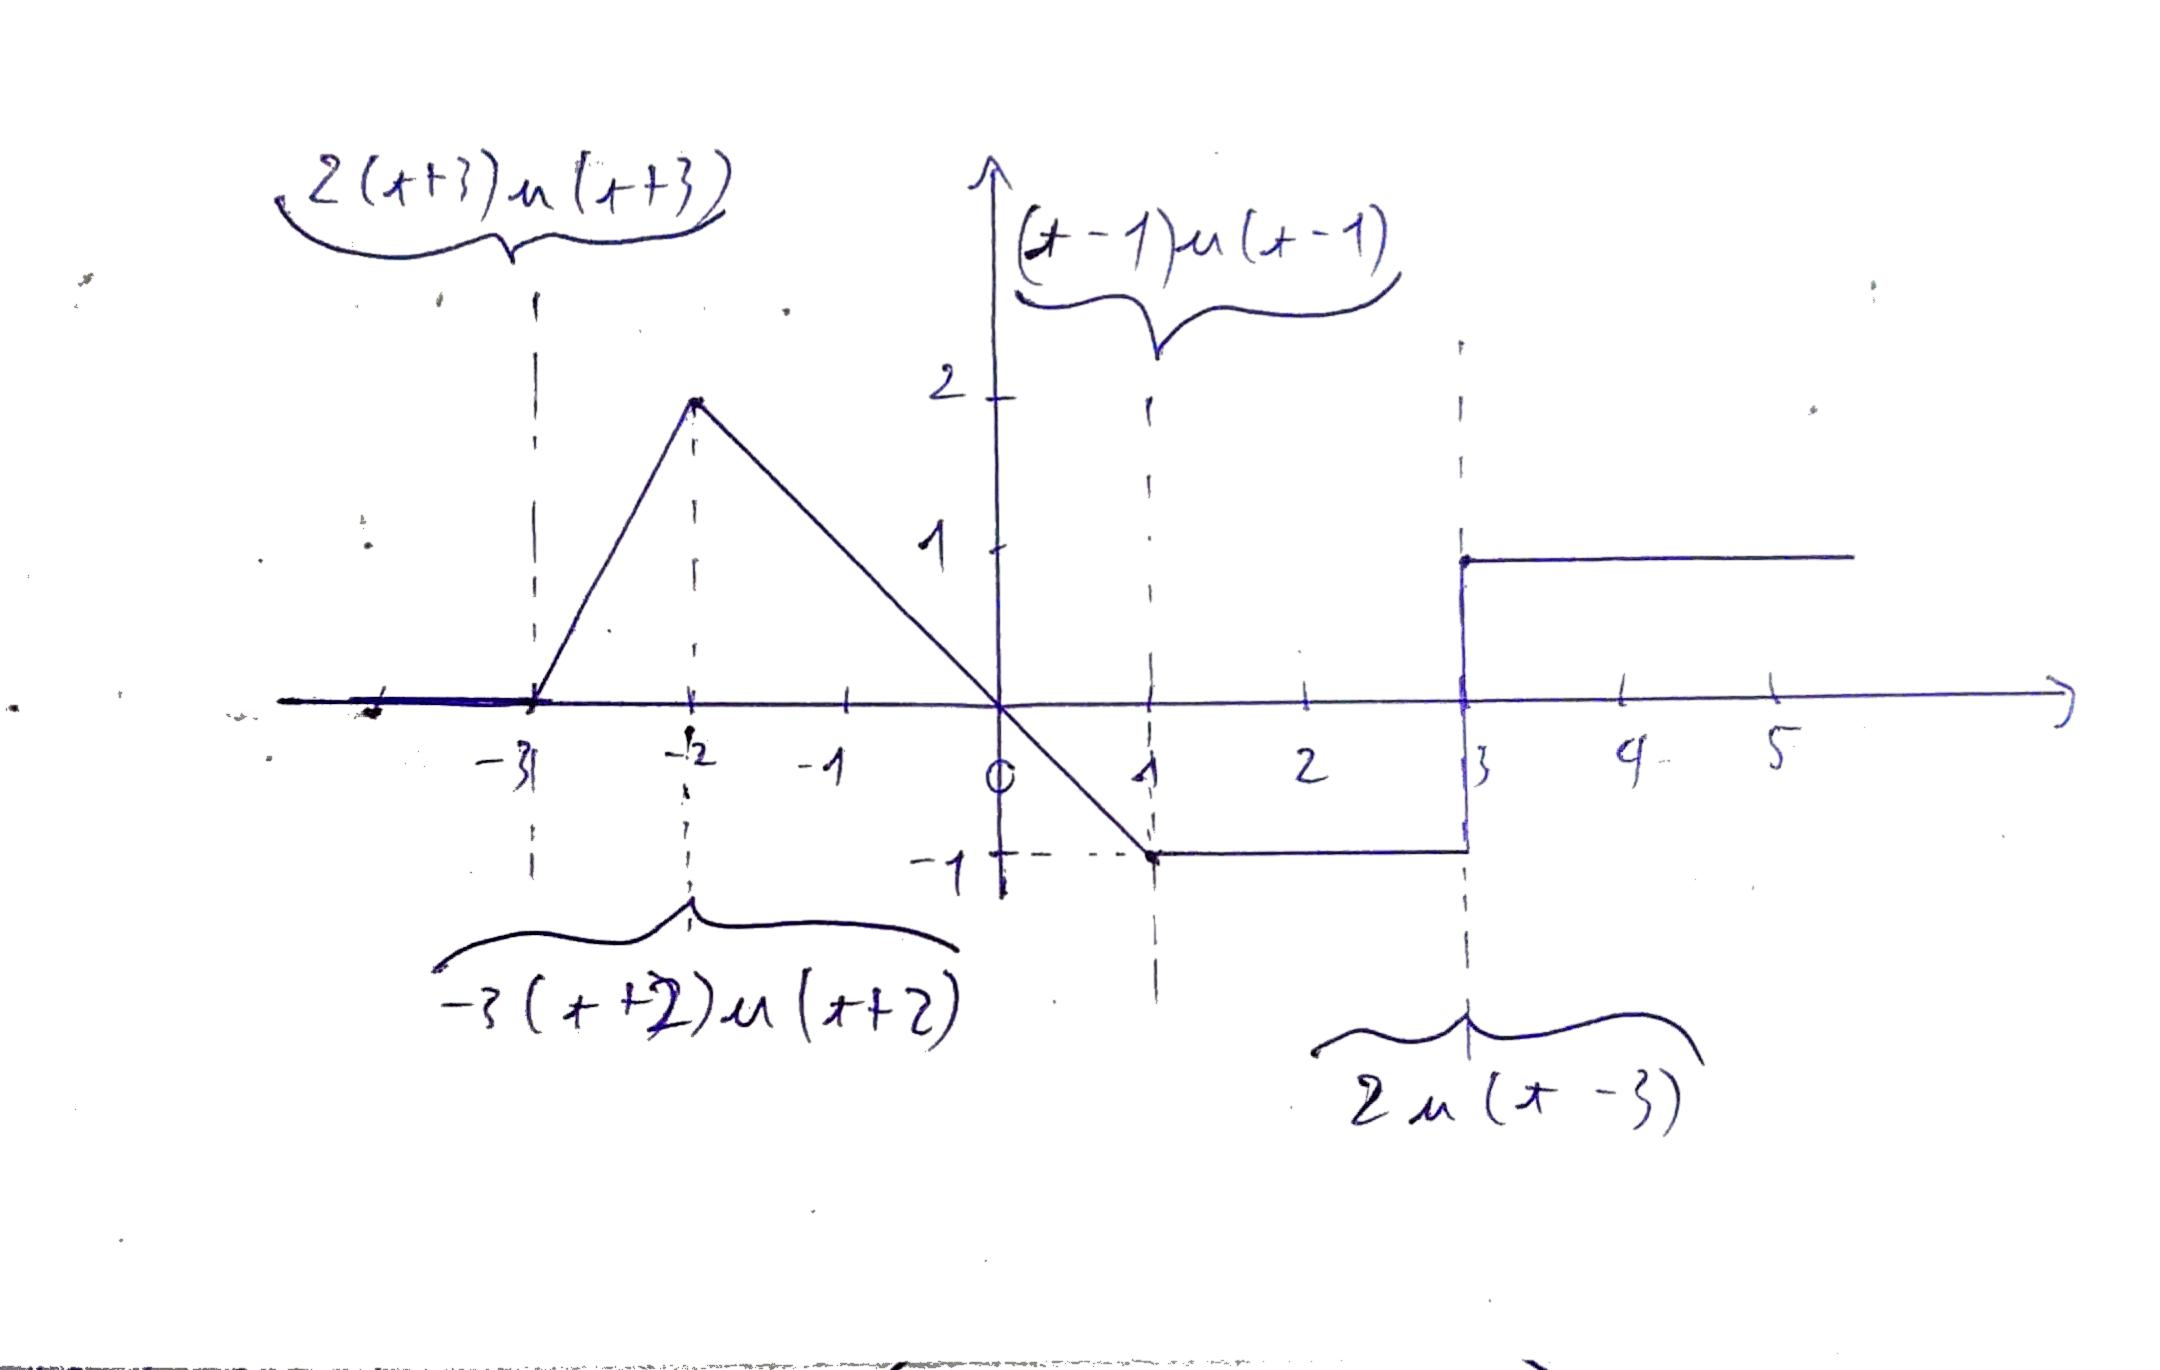 2(t+3)u(t+3)
(t-1)u(t-1)
2
1
-3 -2 -1 0 1 2 3 4 5
-1
-3(t+2)u(t+2)
2u(t-3)